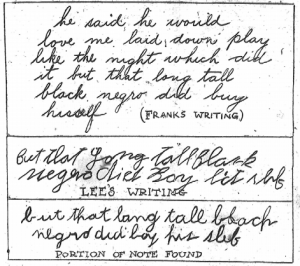 he said he would
love me laid down play
like the night which did
it but that long tall
black negro did buy
hisself (FRANKS WRITING)
But that long tall Black
negro did boy his slef
LEE'S WRITING
but that long tall black
negro did boy his slef
PORTION OF NOTE FOUND